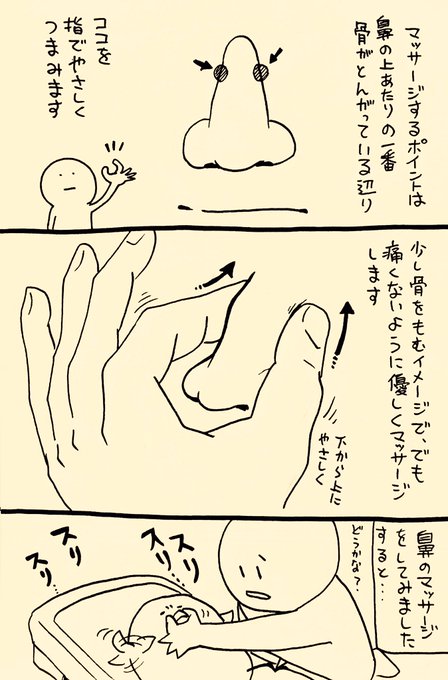 マッサージするポイントは
鼻の上あたりの一番
骨がとんがっている辺り
ココを
指でやさしく
つまみます
少し骨をもむイメージで、でも
痛くないように優しくマッサージ
します
下から上に
やさしく
鼻のマッサージ
をしてみました
すると…
どうかな？
スリ
スリ
スリ
スリ